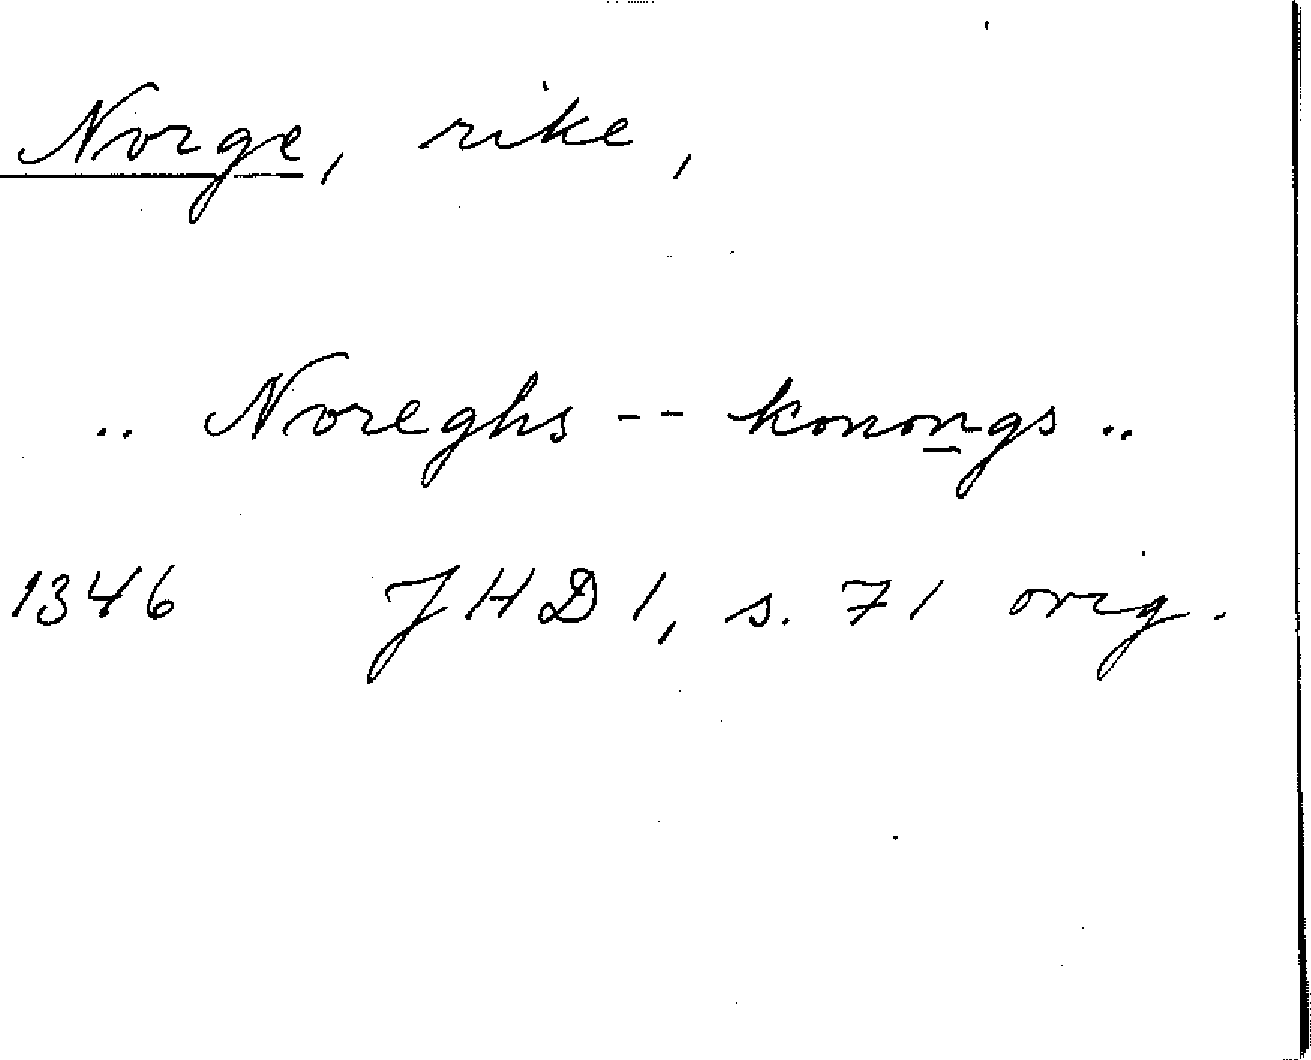 Norge, rike,
.. Noreghs -- konongs ..
1346 JHD 1, s. 71 orig.